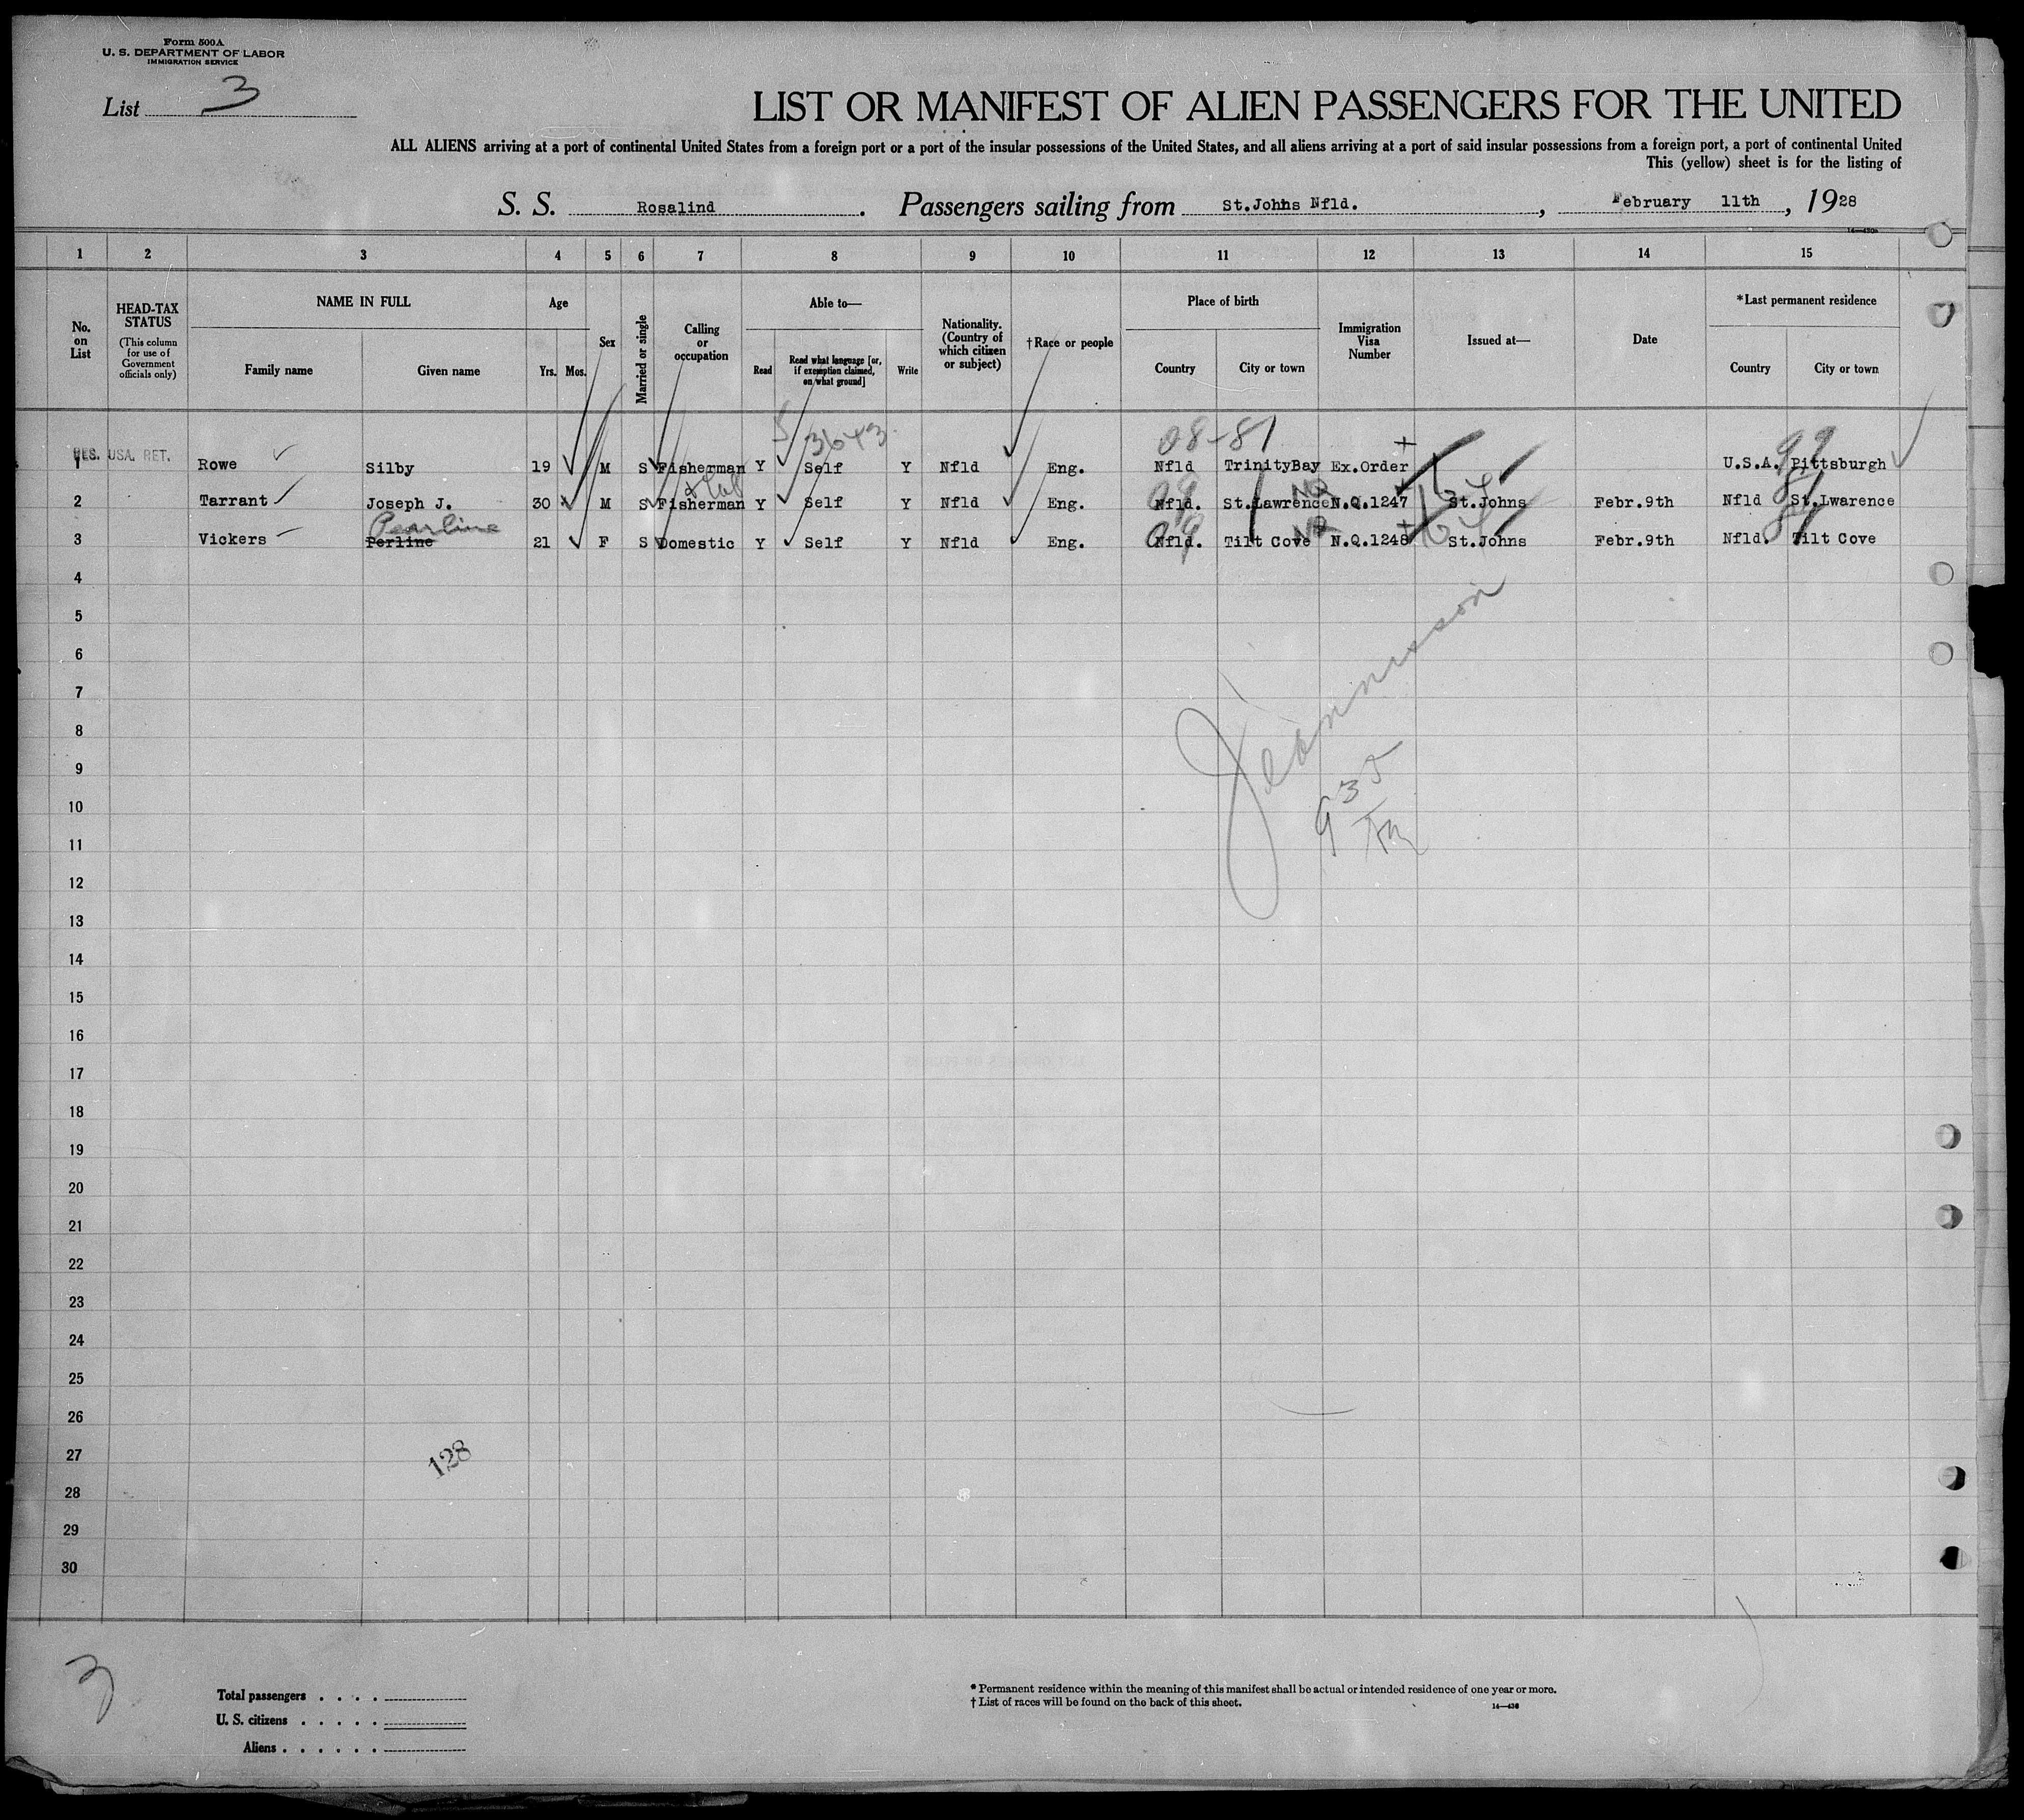 Form 500A
U. S. DEPARTMENT OF LABOR
IMMIGRATION SERVICE
List 3
LIST OR MANIFEST OF ALIEN PASSENGERS FOR THE UNITED
ALL ALIENS arriving at a port of continental United States from a foreign port or a port of the insular possessions of the United States, and all aliens arriving at a port of said insular possessions from a foreign port, a port of continental United
This (yellow) sheet is for the listing of
S. S. Rosalind. Passengers sailing from St.Johns Nfld., February 11th, 1928
1 2 3 4 5 6 7 8 9 10 11 12 13 14 15
No. on List
HEAD-TAX STATUS
(This column for use of Government officials only)
NAME IN FULL
Family name Given name
Age
Yrs. Mos.
Sex
Married or single
Calling or occupation
Able to—
Read
Read what language [or, if exemption claimed, on what ground]
Write
Nationality. (Country of which citizen or subject)
†Race or people
Place of birth
Country City or town
Immigration Visa Number
Issued at—
Date
*Last permanent residence
Country City or town
3643 08-81 99
RES. USA. RET.
1 Rowe Silby 19 M S Fisherman Y Self Y Nfld Eng. Nfld TrinityBay Ex.Order U.S.A. Pittsburgh
2 Tarrant Joseph J. 30 M S Fisherman Y Self Y Nfld Eng. Nfld. St.Lawrence N.Q.1247 St.Johns Febr.9th Nfld St.Lwarence
Pearline
3 Vickers Perline 21 F S Domestic Y Self Y Nfld Eng. Nfld. Tilt Cove N.Q.1248 St.Johns Febr.9th Nfld. Tilt Cove
4
5
6
7
8
9
10
11
12
13
14
15
16
17
18
19
20
21
22
23
24
25
26
27
128
28
29
30
3
Total passengers
U. S. citizens
Aliens
* Permanent residence within the meaning of this manifest shall be actual or intended residence of one year or more.
† List of races will be found on the back of this sheet.
14—436